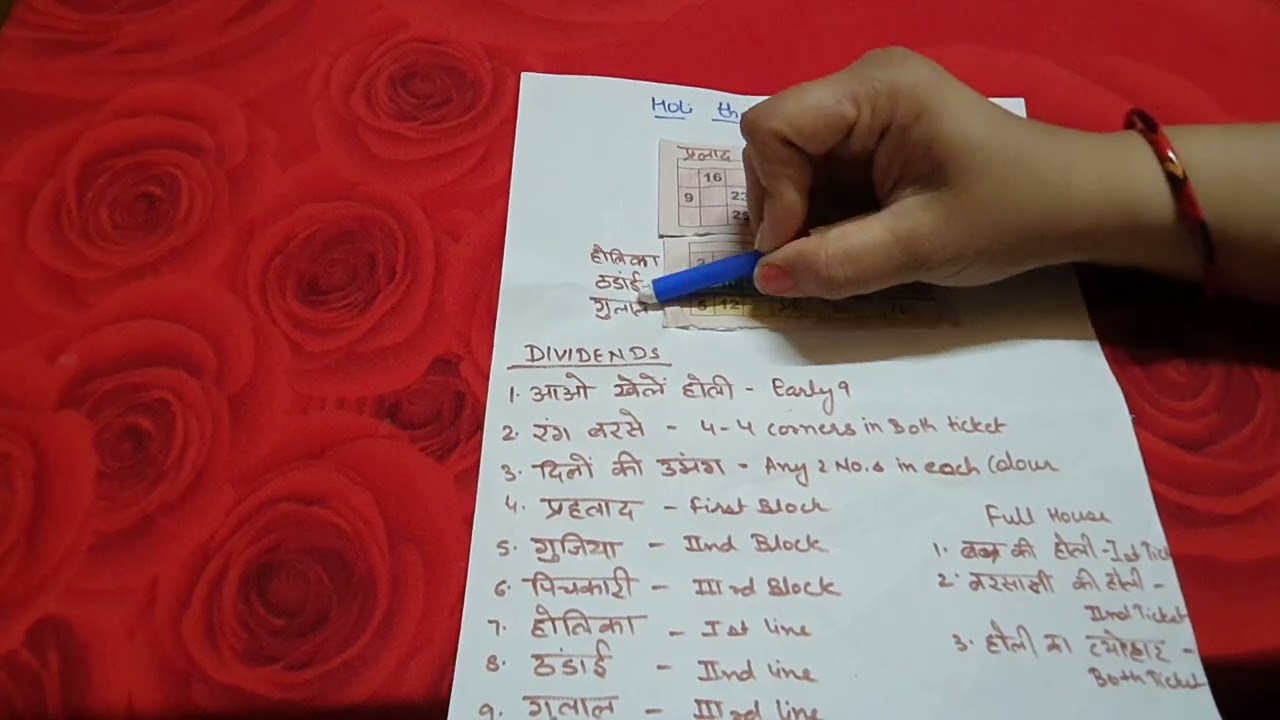 Holi
प्रलाद
16
9 23
25
होलिका
ठंडाई
गुलाल
5 12
DIVIDENDS
1. आओ खेलें होली - Early 9
2. रंग बरसे - 4-4 corners in Both ticket
3. दिलों की उमंग - Any 2 No.s in each Colour
4. प्रहलाद - First Block
5. गुजिया - IInd Block
6. पिचकारी - IIIrd Block
7. होलिका - Ist line
8. ठंडाई - IInd line
9. गुलाल - IIIrd line
Full House
1. की होली - Ist Tic
2. बरसाने की होली -
IInd Ticket
3. होली का त्योहार -
Both Ticket